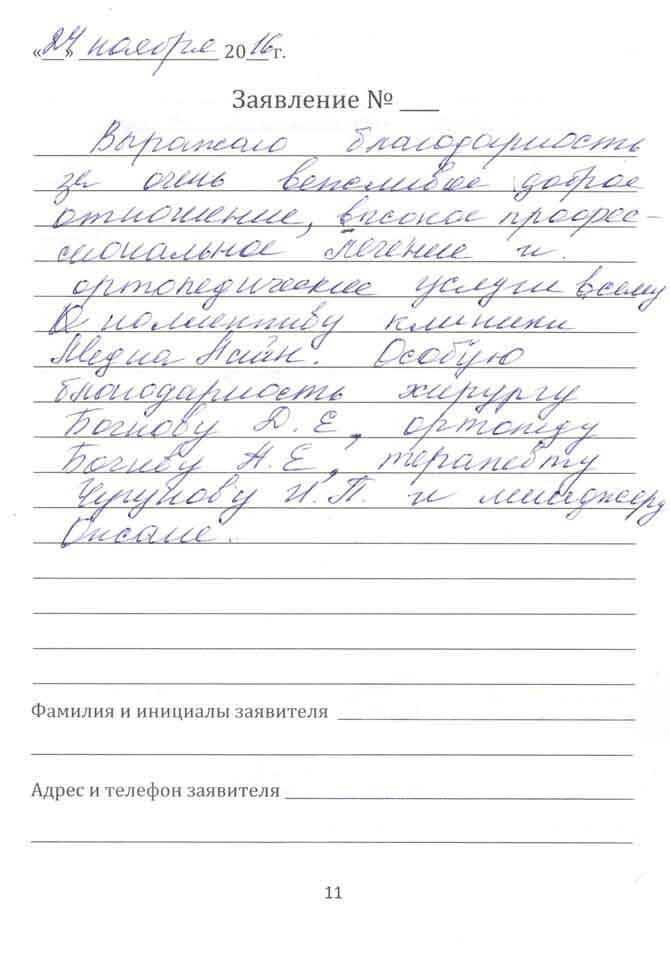 «24» ноября 2016 г.
Заявление № ___
Выражаю благодарность
за очень вежливое доброе
отношение, высокое профес-
сиональное лечение и
ортопедические услуги всему
коллективу клиники
Медиа Лайн. Особую
благодарность хирургу
Бочкову Д. Е, ортопеду
Н. Е, терапевту
Чугунову И. П. и менеджеру
Оксане.
Фамилия и инициалы заявителя
Адрес и телефон заявителя
11